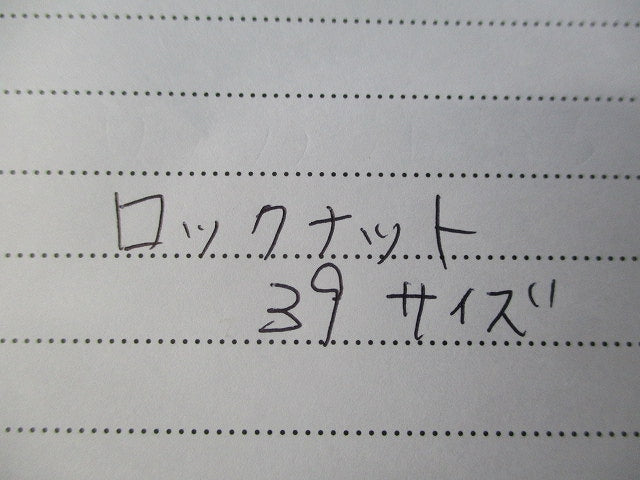 ロックナット
39 サイズ